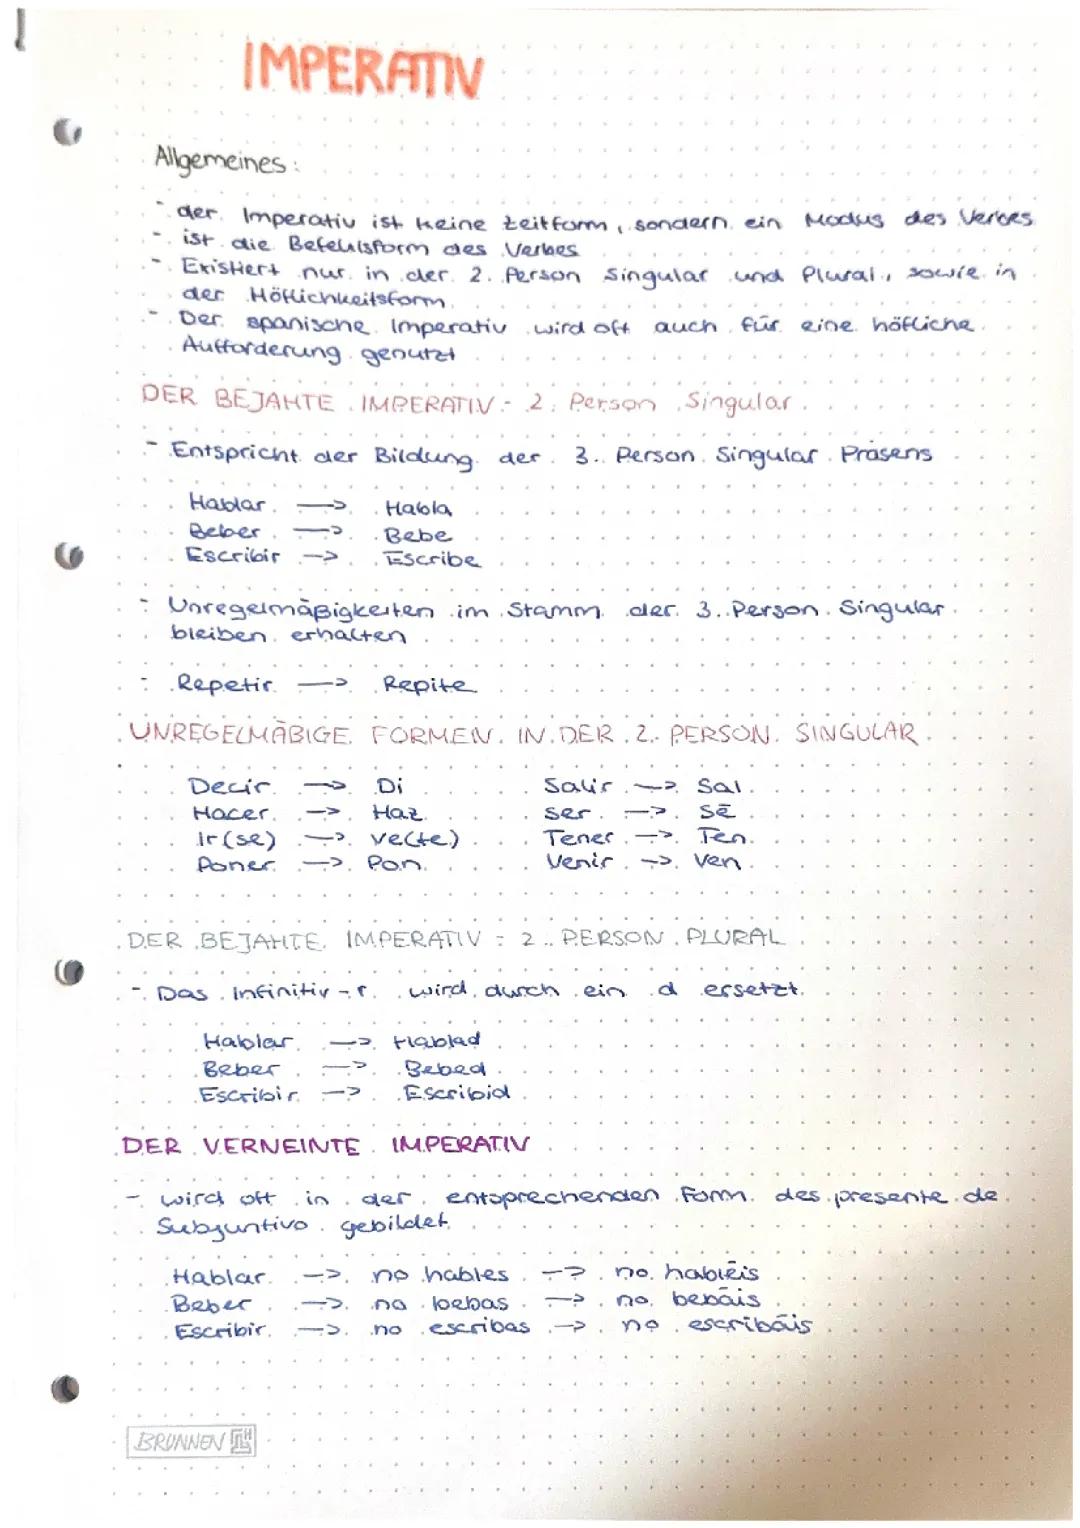 IMPERATIV
Allgemeines:
- der Imperativ ist keine Zeitform, sondern ein Modus des Verbes
- ist die Befehlsform des Verbes
- Existiert nur in der 2. Person Singular und Plural, sowie in
der Höflichkeitsform
- Der spanische Imperativ wird oft auch für eine höfliche
Aufforderung genutzt
DER BEJAHTE IMPERATIV - 2. Person Singular
- Entspricht der Bildung der 3. Person Singular Präsens
Hablar —> Habla
Beber —> Bebe
Escribir —> Escribe
- Unregelmäßigkeiten im Stamm der 3. Person Singular
bleiben erhalten
- Repetir —> Repite
UNREGELMÄßIGE FORMEN IN DER 2. PERSON SINGULAR
Decir —> Di Salir —> Sal
Hacer —> Haz ser —> Sé
Ir(se) —> Ve(te) Tener —> Ten
Poner —> Pon Venir —> Ven
DER BEJAHTE IMPERATIV - 2. PERSON PLURAL
- Das Infinitiv -r wird durch ein d ersetzt
Hablar —> Hablad
Beber —> Bebed
Escribir —> Escribid
DER VERNEINTE IMPERATIV
- wird oft in der entsprechenden Form des presente de
Subjuntivo gebildet
Hablar —> no hables —> no habléis
Beber —> no bebas —> no bebáis
Escribir —> no escribas —> no escribáis
BRUNNEN